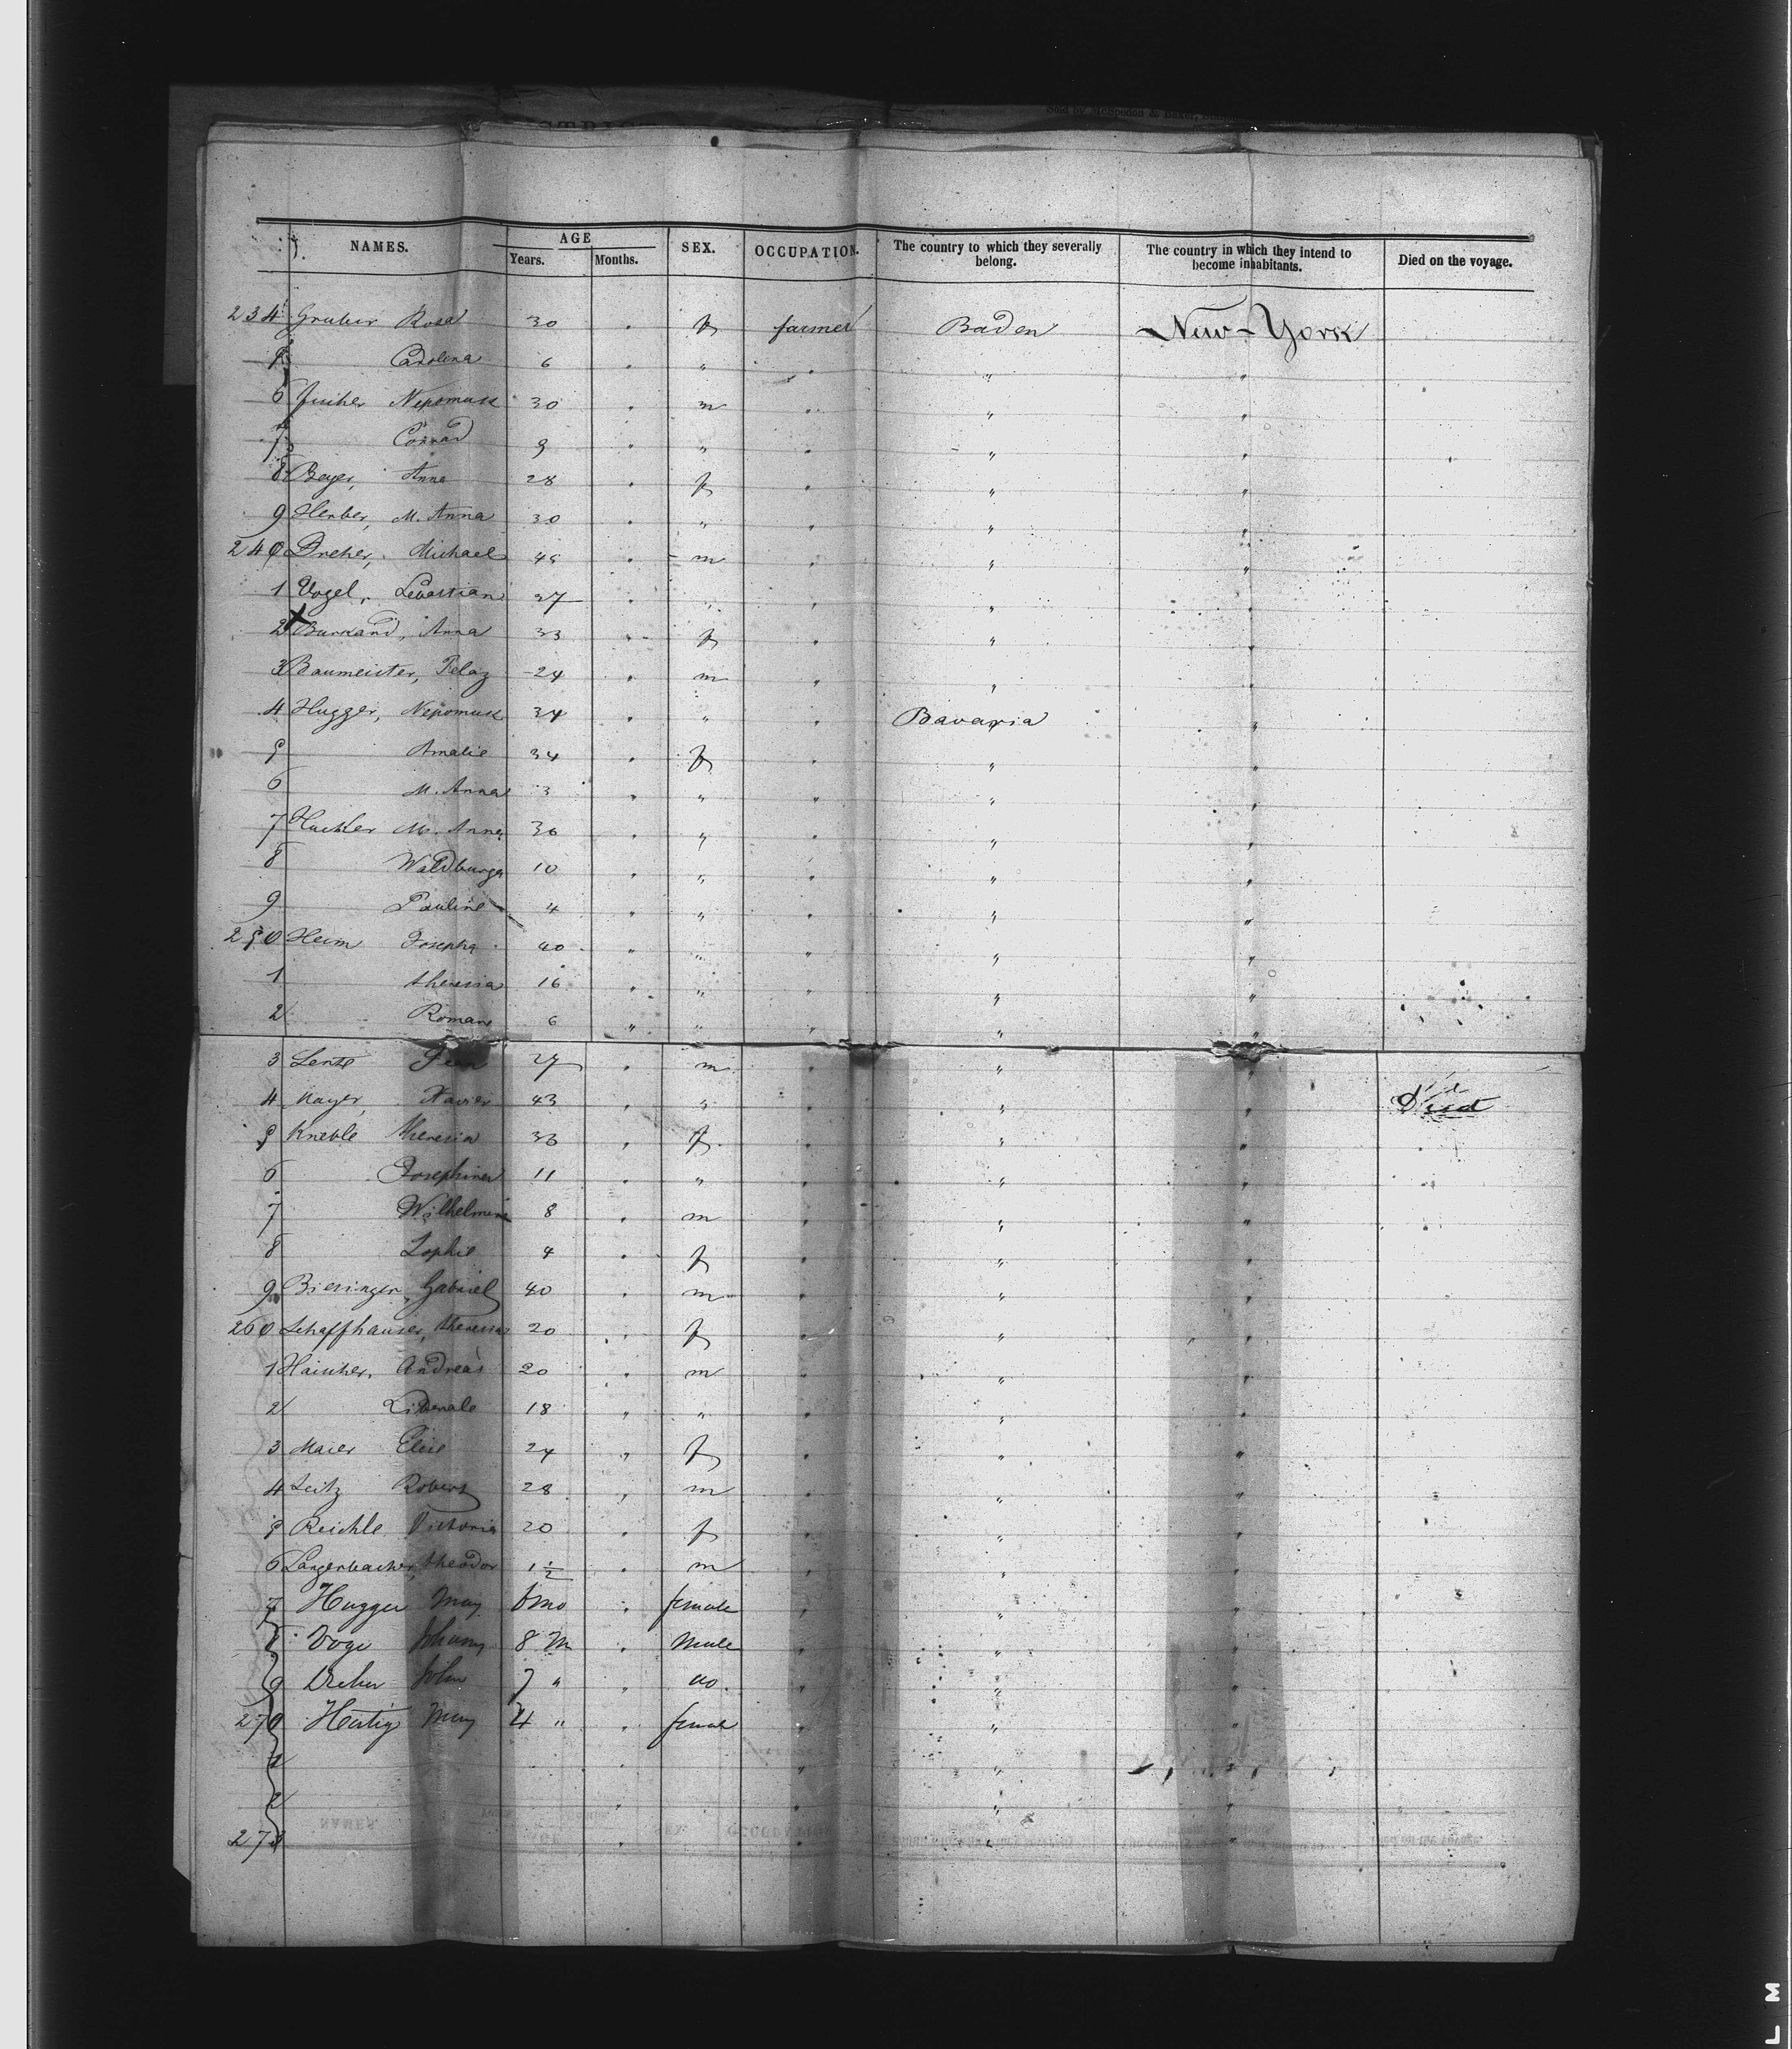 Sold by McSpedon & Baker,
NAMES. AGE SEX. OCCUPATION. The country to which they severally belong. The country in which they intend to become inhabitants. Died on the voyage.
Years. Months.
234 Gruber Rosa 30 " f farmer Baden New-York
5 Carolina 6 " " " " "
6 Fischer Nepomuk 30 " m " " "
7 Conrad 9 " " " " "
8 Beyer, Anna 28 " f " " "
9 Herber, M. Anna 30 " " " " "
240 Dreher, Michael 45 " m " " "
1 Vogel, Sebastian 27 " " " " "
2 X Burkard, Anna 33 " f " " "
3 Baumeister, Pelaz 24 " m " " "
4 Hugger, Nepomuk 34 " " " Bavaria "
5 Amalie 34 " f " " "
6 M. Anna 3 " " " " "
7 M. Anna 36 " " " " "
8 Waldburga 10 " " " " "
9 Pauline 4 " " " " "
250 Heim Josepha 40 " " " " "
1 theresia 16 " " " " "
2 Roman 6 " " " " "
3 27 " m " " "
4 Mayer, Xavier 43 " " " " " Died
5 Kneble theresia 36 " f " " "
6 Josephine 11 " " " " "
7 Wilhelmine 8 " m " " "
8 Sophie 4 " f " " "
9 Biesinger, Gabriel 40 " m " " "
260 Schaffhauser, theresia 20 " f " " "
1 Haischer, Andreas 20 " m " " "
2 Liberale 18 " " " " "
3 Maier Elise 24 " f " " "
4 Seitz Robert 28 " m " " "
5 Reichle Victoria 20 " f " " "
6 Langenbacher, theodor 1 1/2 " m " " "
7 Hugger May 6 mo " female " " "
8 Johanny 8 M " Male " " "
9 Dreher John 7 " " do. " " "
270 Hertig Mary 4 " " female " " "
1 " " " "
2 " " " "
273 " " " "
L M